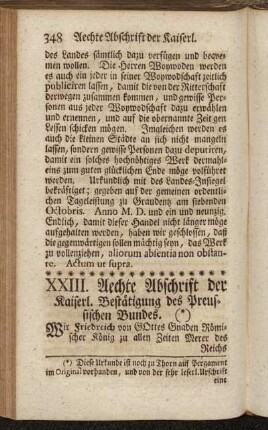 348 Aechte Abschrift der Kaiserl.
des Landes sämtlich dazu verfügen und beqve-
men wollen. Die Herren Woywoden werden
es auch ein jeder in seiner Woywodschaft zeitlich
publiciren lassen, damit die von der Ritterschaft
derwegen zusammen kommen, und gewisse Perso-
nen aus jeder Woywodschaft dazu erwählen
und ernennen, und auf die obernannte Zeit gen
Lessen schicken mögen. Imgleichen werden es
auch die kleinen Städte an sich nicht mangeln
lassen, sondern gewisse Personen dazu deputiren,
damit ein solches hochnöhtiges Werk dermahl-
eins zum guten glücklichen Ende möge vollführt
werden. Urkundlich mit des Landes-Insiegel
bekräftiget; gegeben auf der gemeinen ordentli-
chen Tageleistung zu Graudenz am siebenden
Octobris. Anno M. D. und ein und neunzig.
Endlich, damit dieser Handel nicht länger möge
aufgehalten werden, haben wir geschlossen, daß
die gegenwärtigen sollen mächtig seyn, das Werk
zu vollenziehen, aliorum absentia non obstan-
te. Actum ut supra.
XXIII. Aechte Abschrift der
Kaiserl. Bestätigung des Preus-
sischen Bundes. (*)
Wir Friedreich von GOttes Gnaden Römi-
scher König zu allen Zeiten Merer des
Reichs
(*) Diese Urkunde ist noch zu Thorn auf Pergament
im Original vorhanden, und von der sehr leserl. Urschrift
eine